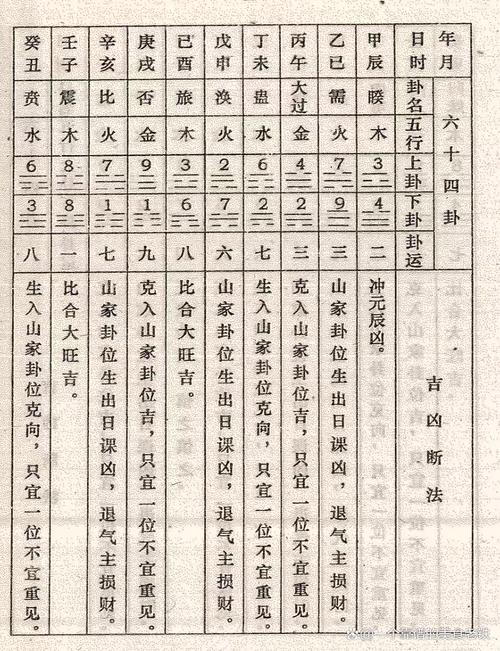 年月
日时
六十四卦
卦名
五行
上卦
下卦
卦运
吉凶断法
甲辰
睽
木
3
4
二
冲元辰凶。
乙巳
需
火
7
9
三
山家卦位生出日课凶，退气主损财。
丙午
大过
金
4
2
三
克入山家卦位吉，只宜一位不宜重见。
丁未
蛊
水
6
2
七
生入山家卦位克向，只宜一位不宜重见。
戊申
涣
火
2
7
六
山家卦位生出日课凶，退气主损财。
己酉
旅
木
3
6
八
比合大旺吉。
庚戌
否
金
9
1
九
克入山家卦位吉，只宜一位不宜重见。
辛亥
比
火
7
1
七
山家卦位生出日课凶，退气主损财。
壬子
震
木
8
8
一
比合大旺吉。
癸丑
贲
水
6
3
八
生入山家卦位克向，只宜一位不宜重见。